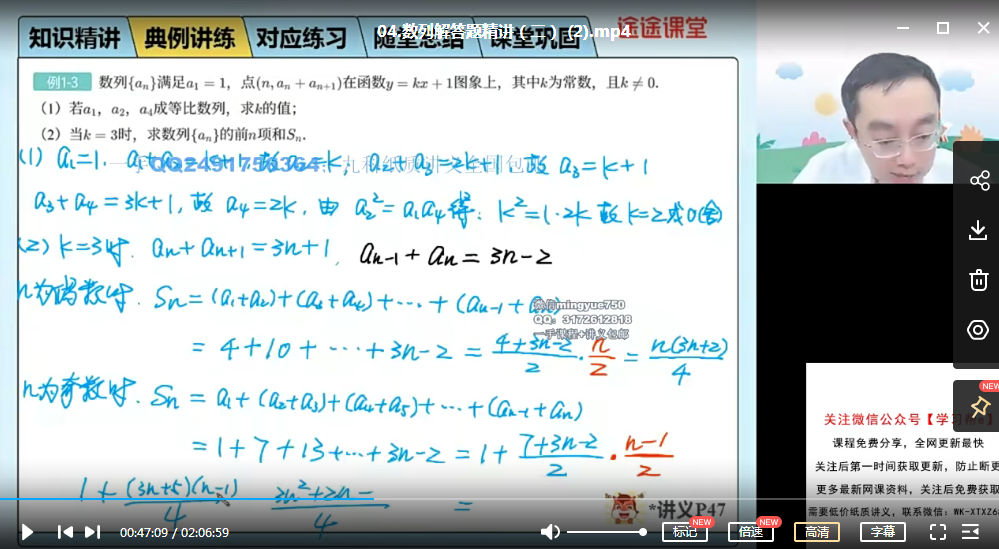 04.数列解答题精讲（二） (2).mp4
知识精讲 典例讲练 对应练习 随堂总结 课堂巩固 途途课堂
例1-3 数列{aₙ}满足a₁ = 1，点(n, aₙ + aₙ₊₁)在函数y = kx + 1图象上，其中k为常数，且k ≠ 0.
（1）若a₁，a₂，a₄成等比数列，求k的值；
（2）当k = 3时，求数列{aₙ}的前n项和Sₙ.
(1) a₁=1. a₁+a₂=k+1, 故a₂=k, a₂+a₃=2k+1, 故 a₃=k+1
a₃+a₄=3k+1, 故 a₄=2k, 由 a₂²=a₁a₄得: k²=1·2k 故k=2或0(舍)
(2) k=3时. aₙ+aₙ₊₁=3n+1, aₙ₋₁+aₙ=3n-2
n为偶数时. Sₙ=(a₁+a₂)+(a₃+a₄)+⋯+(aₙ₋₁+aₙ)
微信mingyue750
QQ: 3172612818
一手课程+讲义包邮
=4+10+⋯+3n-2=(4+3n-2)/2·n/2=n(3n+2)/4
n为奇数时. Sₙ=a₁+(a₂+a₃)+(a₄+a₅)+⋯+(aₙ₋₁+aₙ)
=1+7+13+⋯+3n-2=1+(7+3n-2)/2·(n-1)/2
1+(3n+5)(n-1)/4 (3n²+2n-)/4 =
*讲义P47
NEW
关注微信公众号【学习
课程免费分享，全网更新最快
关注后第一时间获取更新，防止断更
更多最新网课资料，关注后免费获取
需要低价纸质讲义，联系微信：WK-XTXZ6
00:47:09 / 02:06:59
标记 NEW 倍速 NEW 高清 字幕